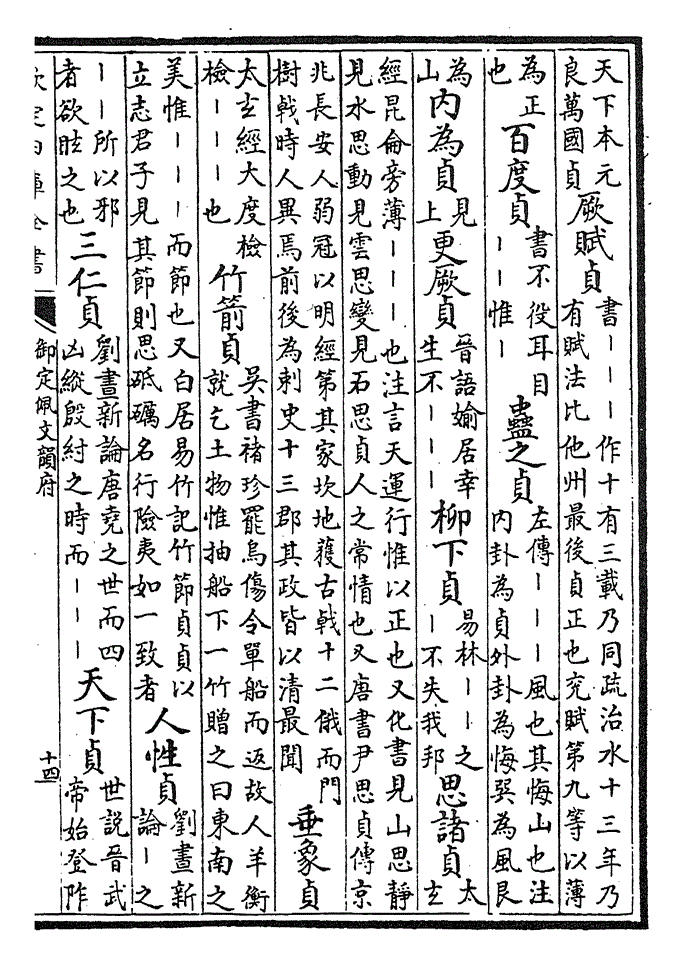 天下本元
良萬國貞
厥賦貞
書丨丨丨作十有三載乃同疏治水十三年乃
有賦法比他州最後貞正也兖賦第九等以薄
為正
也
百度貞
書不役耳目
丨丨惟丨
蠱之貞
左傳丨丨丨風也其悔山也注
内卦為貞外卦為悔巽為風艮
為
山
内為貞
見
上
更厥貞
晉語媮居幸
生不丨丨丨
柳下貞
易林丨丨之
丨不失我邦
思諸貞
太
玄
經昆倫旁薄丨丨丨也注言天運行惟以正也又化書見山思静
見水思動見雲思變見石思貞人之常情也又唐書尹思貞傳京
兆長安人弱冠以明經第其家坎地獲古戟十二俄而門
樹戟時人異焉前後為刺史十三郡其政皆以清最聞
垂象貞
太玄經大度檢
檢丨丨丨也
竹箭貞
吳書褚珍罷烏傷令單船而返故人羊衡
就乞土物惟抽船下一竹贈之曰東南之
美惟丨丨丨而節也又白居易竹記竹節貞貞以
立志君子見其節則思砥礪名行險夷如一致者
人性貞
劉晝新
論丨之
丨丨所以邪
者欲眩之也
三仁貞
劉晝新論唐堯之世而四
凶縱殷紂之時而丨丨丨
天下貞
世説晉武
帝始登阼
欽定四庫全書
御定佩文韻府
十四